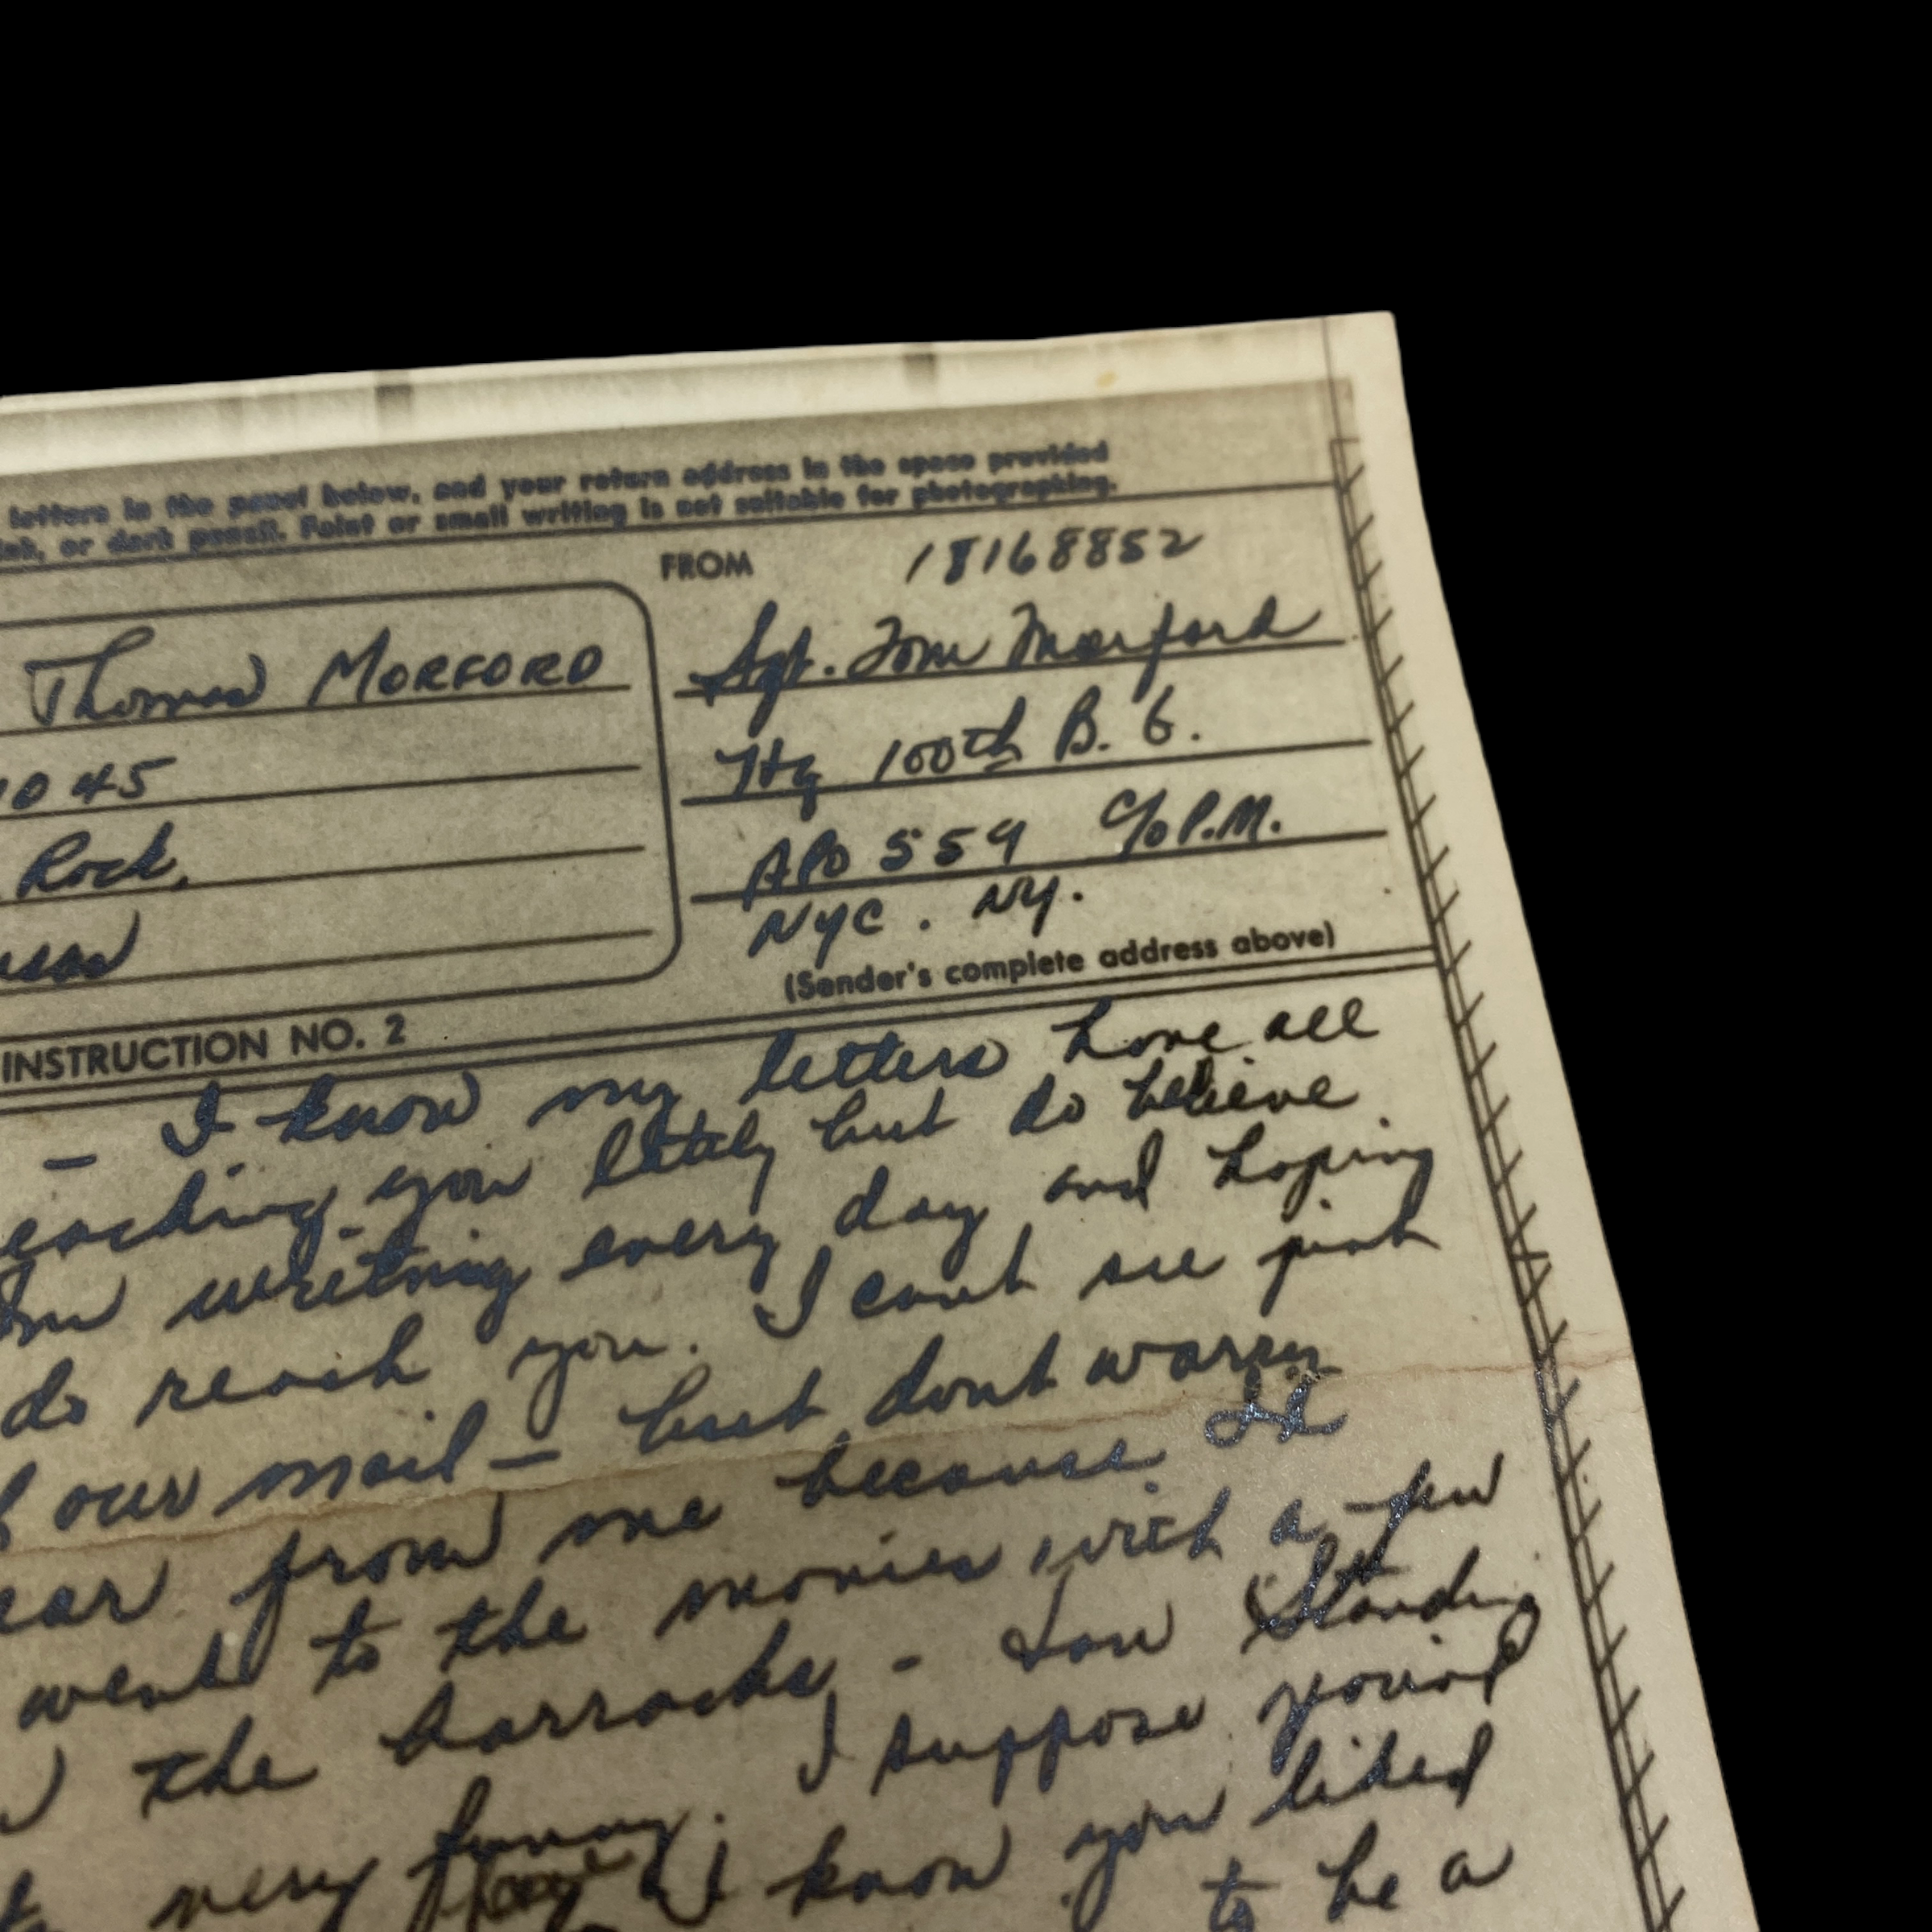 letters in the panel below, and your return address in the space provided
ink, or dark pencil. Faint or small writing is not suitable for photographing.
FROM 18168852
Thomas MORFORD
Sgt. Tom Morford
1045
Hq 100th B. G.
Rock,
APO 559 c/o P.M.
NYC. NY.
(Sender's complete address above)
INSTRUCTION NO. 2
- I know my letters have all
you lately but do believe
writing every day and hoping
do reach you. I cant see
our mail - but dont worry
from me because
went to the movies with a few
the barracks -
I suppose
very funny. I know you liked
to be a